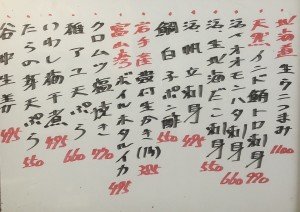 北海道 生ウニつまみ 1100
天然 鮪トロ刺身 990
活 オオモンハタ刺身 660
活 だこ刺身 550
活 帆立刺身
鯛白子ポン酢 550
岩手産 殻付生かき(1ヶ) 385
富山産 ボイルホタルイカ 495
クロムツ塩焼き 770
稚アユ天ぷら 660
いわし 煮 495
たらの芽天ぷら 550
谷中生姜 495